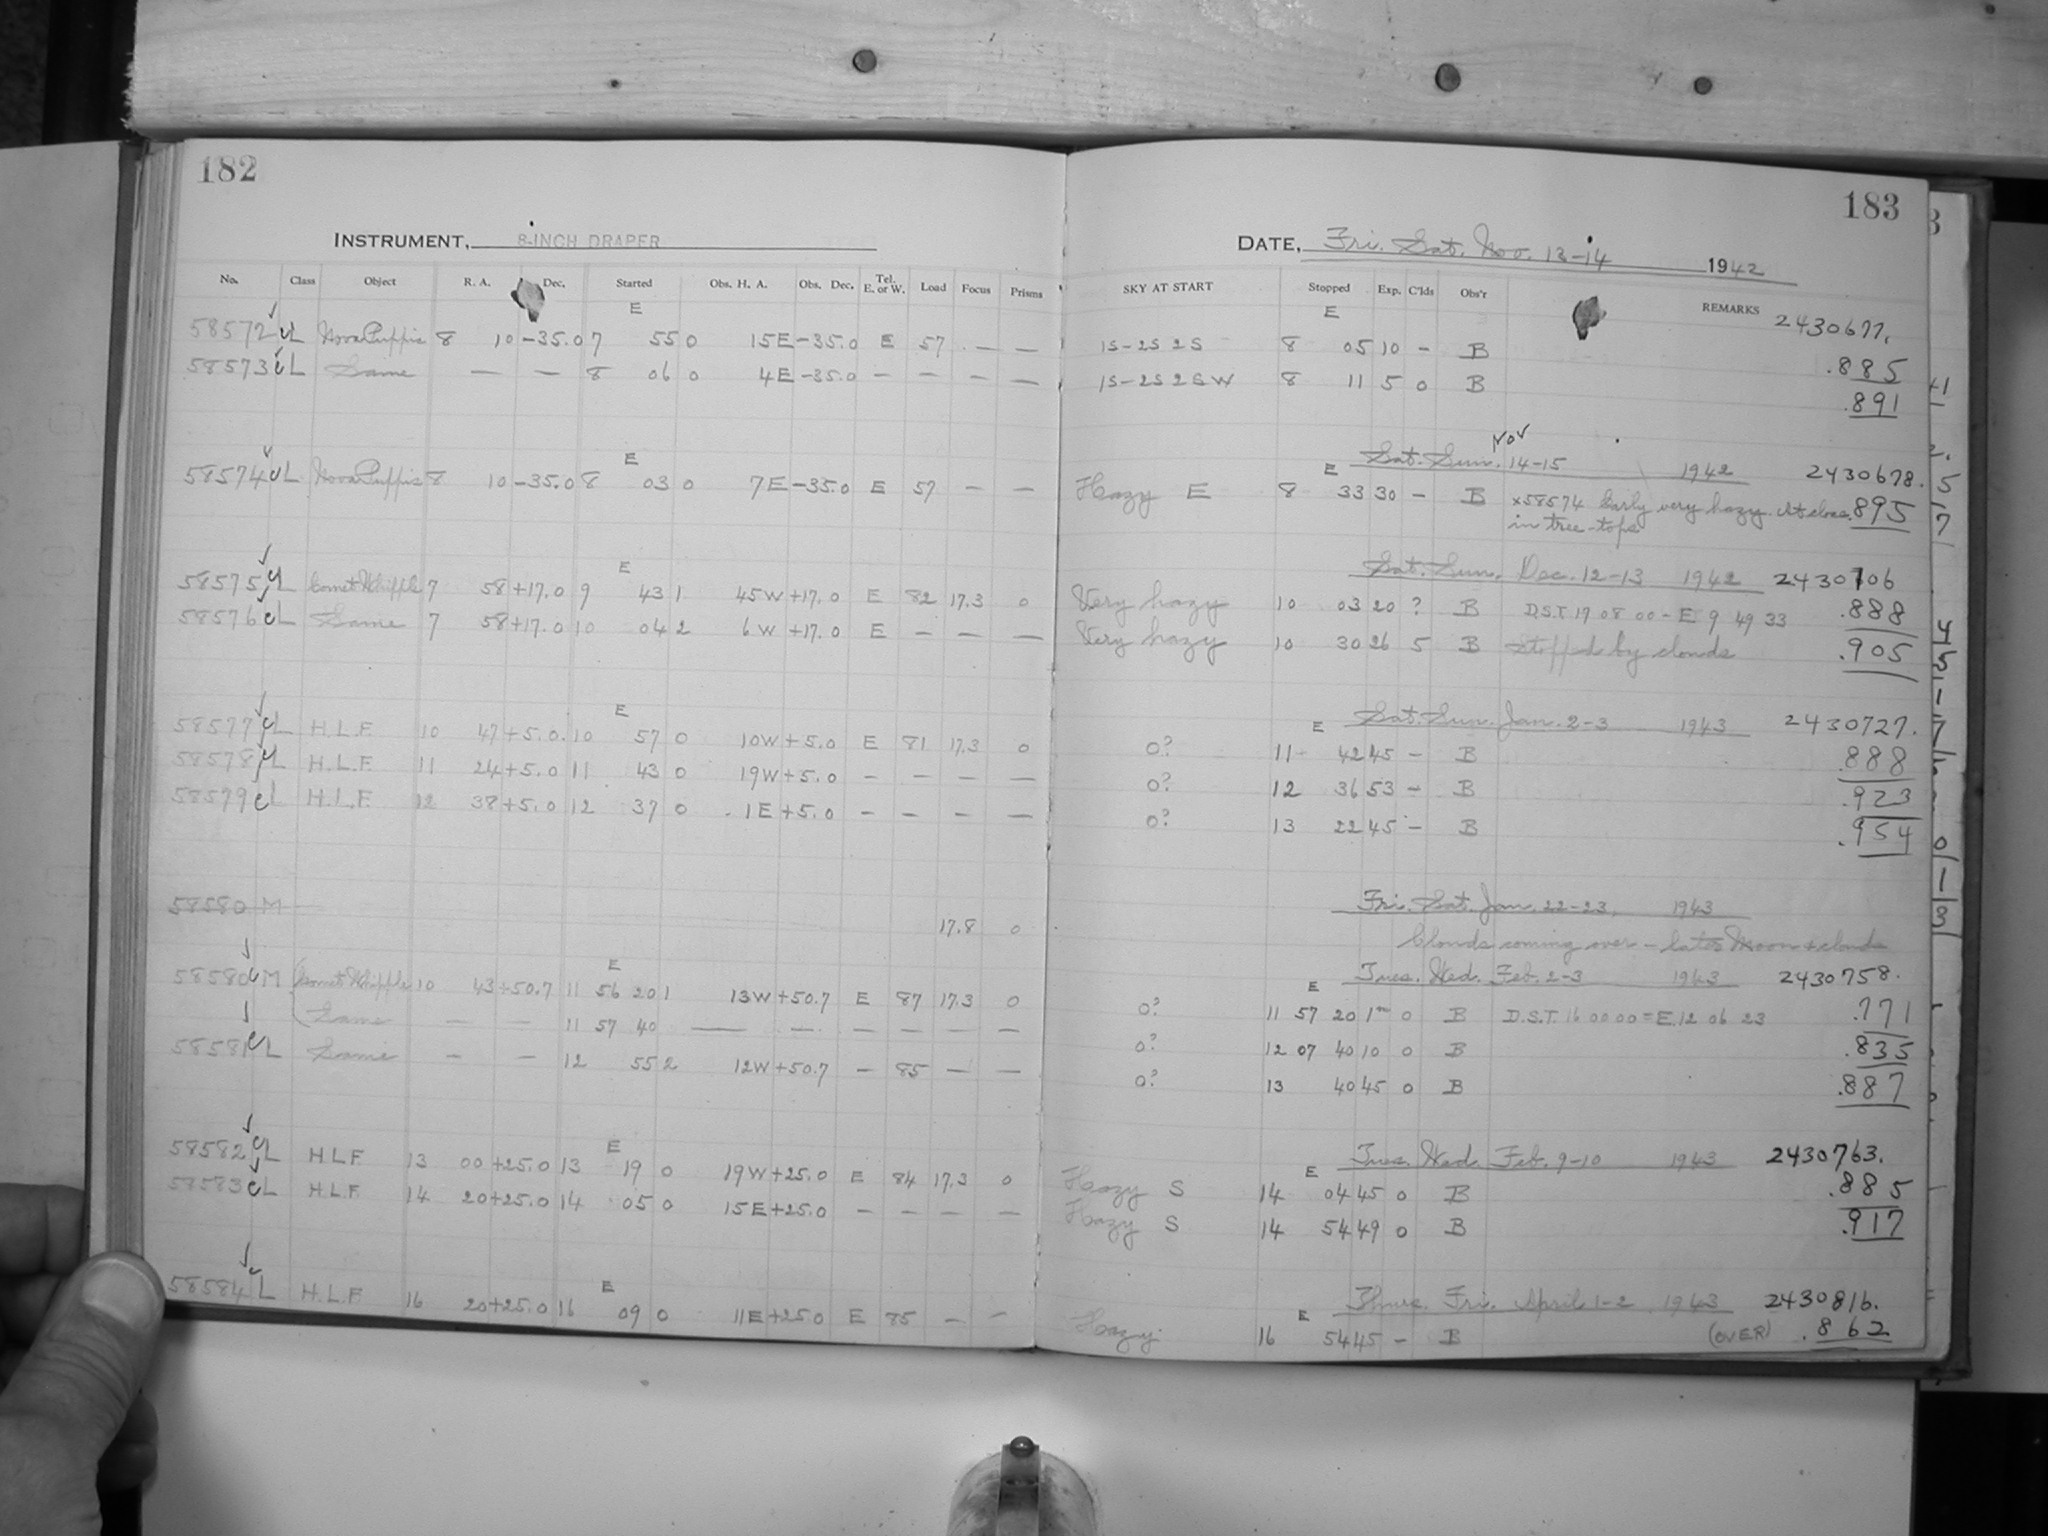 182
INSTRUMENT, 8-INCH DRAPER
No. Class Object R. A. Dec. Started Obs. H. A. Obs. Dec. Tel. E. or W. Load Focus Prisms
E
58572 L Nova Puppis 8 10 -35.0 7 55 0 15E -35.0 E 57 — —
58573 L Same — — 8 06 0 4E -35.0 — — — —
E
58574 L Nova Puppis 8 10 -35.0 8 03 0 7E -35.0 E 57 — —
E
58575 L Comet Whipple 7 58 +17.0 9 43 1 45W +17.0 E 82 17.3 0
58576 L Same 7 58 +17.0 10 04 2 6W +17.0 E — — —
E
58577 L H.L.F. 10 47 +5.0 10 57 0 10W +5.0 E 81 17.3 0
58578 L H.L.F. 11 24 +5.0 11 43 0 19W +5.0 — — — —
58579 L H.L.F. 12 38 +5.0 12 37 0 1E +5.0 — — — —
58580 M 17.8 0
E
58580 M Comet Whipple 10 43 +50.7 11 56 20 1 13W +50.7 E 87 17.3 0
Same — — 11 57 40 — — — — — —
58581 L Same — — 12 55 2 12W +50.7 — 85 — —
E
58582 L H.L.F. 13 00 +25.0 13 19 0 19W +25.0 E 84 17.3 0
58583 L H.L.F. 14 20 +25.0 14 05 0 15E +25.0 — — — —
E
58584 L H.L.F. 16 20 +25.0 16 09 0 11E +25.0 E 85 — —
183
DATE, Fri. Sat. Nov. 13-14 1942
SKY AT START Stopped Exp. C'lds Obs'r REMARKS
E 2430677.
1S-2S 2S 8 05 10 — B .885
1S-2S 2SW 8 11 5 0 B .891
Nov
E Sat. Sun. 14-15 1942 2430678.
Hazy E 8 33 30 — B x58574 Early very hazy. At close .895
in tree-tops
Sat. Sun. Dec. 12-13 1942 2430706
Very hazy 10 03 20 ? B D.S.T. 19 08 00 - E 9 49 33 .888
Very hazy 10 30 26 5 B Stopped by clouds .905
E Sat. Sun. Jan. 2-3 1943 2430727.
0? 11 42 45 — B .888
0? 12 36 53 — B .923
0? 13 22 45 — B .954
Fri. Sat. Jan. 22-23, 1943
Clouds coming over - later Moon + clouds
E Tues. Wed. Feb. 2-3 1943 2430758.
0? 11 57 20 1m 0 B D.S.T. 16 00 00 = E. 12 06 23 .771
0? 12 07 40 10 0 B .835
0? 13 40 45 0 B .887
E Tues. Wed. Feb. 9-10 1943 2430763.
Hazy S 14 04 45 0 B .885
Hazy S 14 54 49 0 B .917
E Thurs. Fri. April 1-2 1943 2430816.
Hazy 16 54 45 — B (OVER) .862